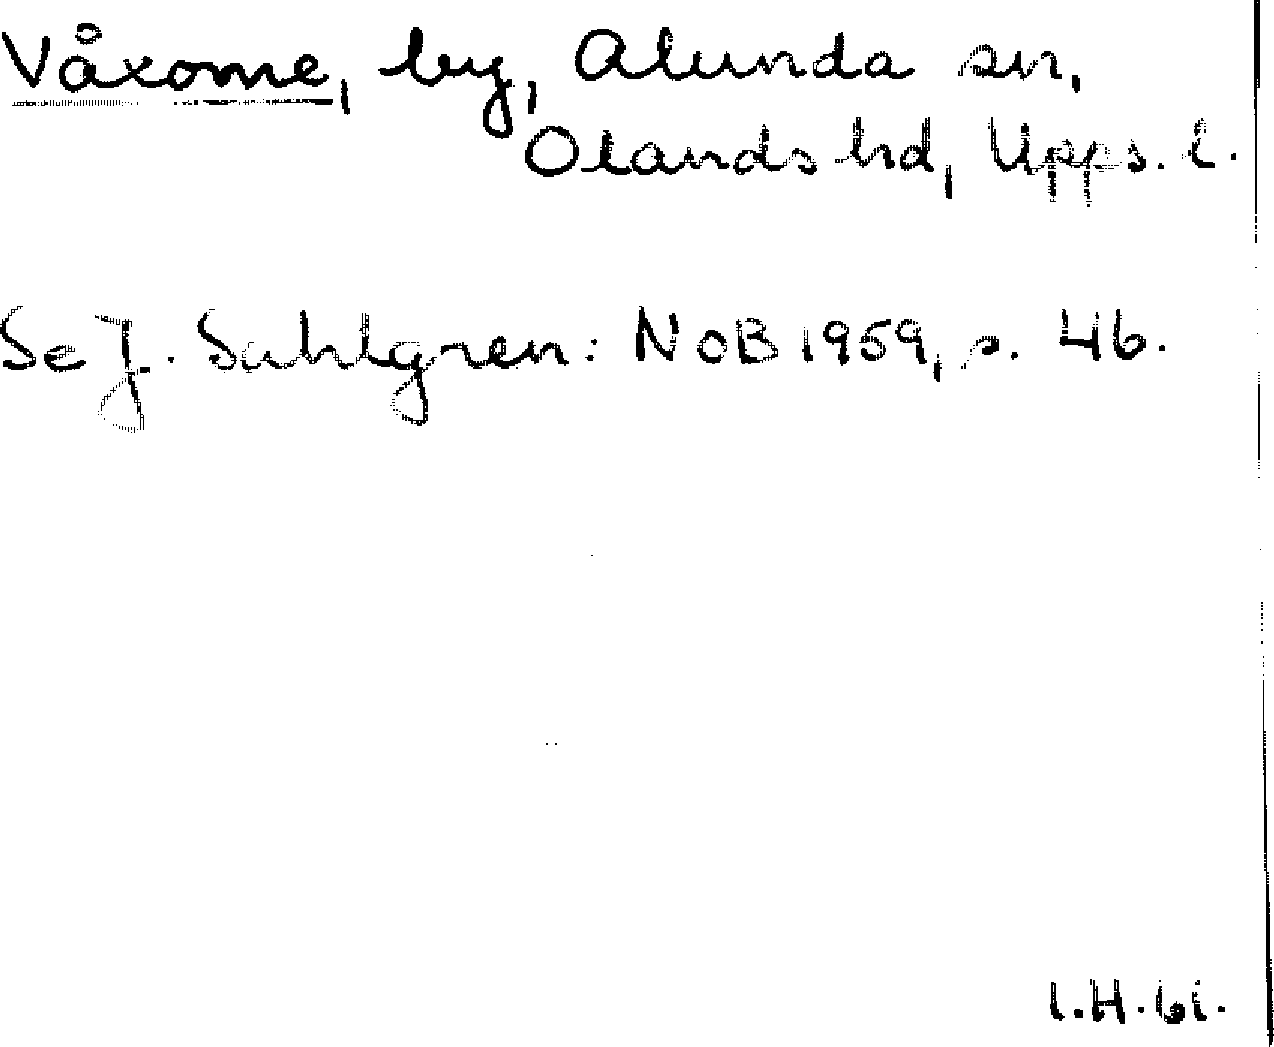 Våxome, by, Alunda sn,
Olands hd, Upps. l.
Se J. Sahlgren: NoB 1959, s. 46.
I.H. 61.